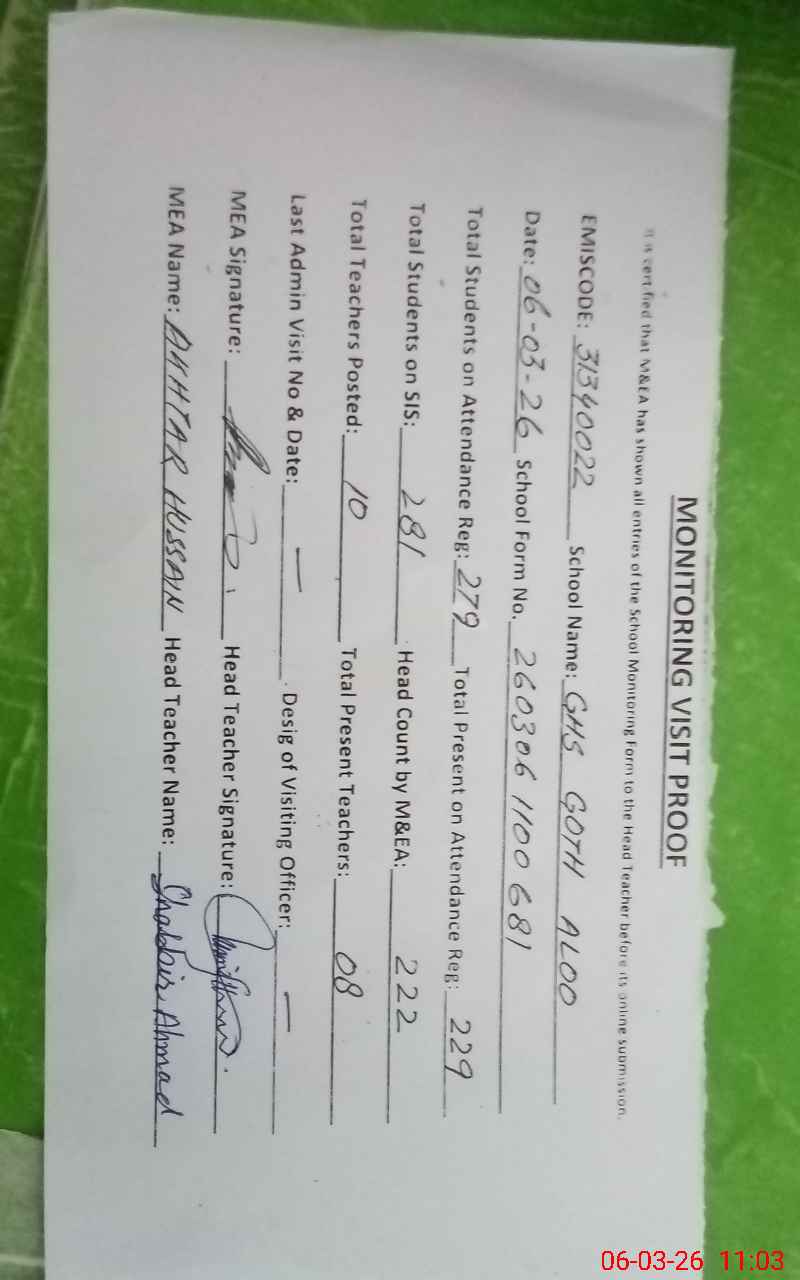 MONITORING VISIT PROOF
It is certified that M&EA has shown all entries of the School Monitoring Form to the Head Teacher before its online submission.
EMISCODE: 31340022 School Name: GHS GOTH ALOO
Date: 06-03-26 School Form No. 260306 1100 681
Total Students on Attendance Reg: 279 Total Present on Attendance Reg: 229
Total Students on SIS: 281 Head Count by M&EA: 222
Total Teachers Posted: 10 Total Present Teachers: 08
Last Admin Visit No & Date: — Desig of Visiting Officer: —
MEA Signature: Head Teacher Signature:
MEA Name: AKHTAR HUSSAIN Head Teacher Name: Shabbir Ahmad
06-03-26 11:03